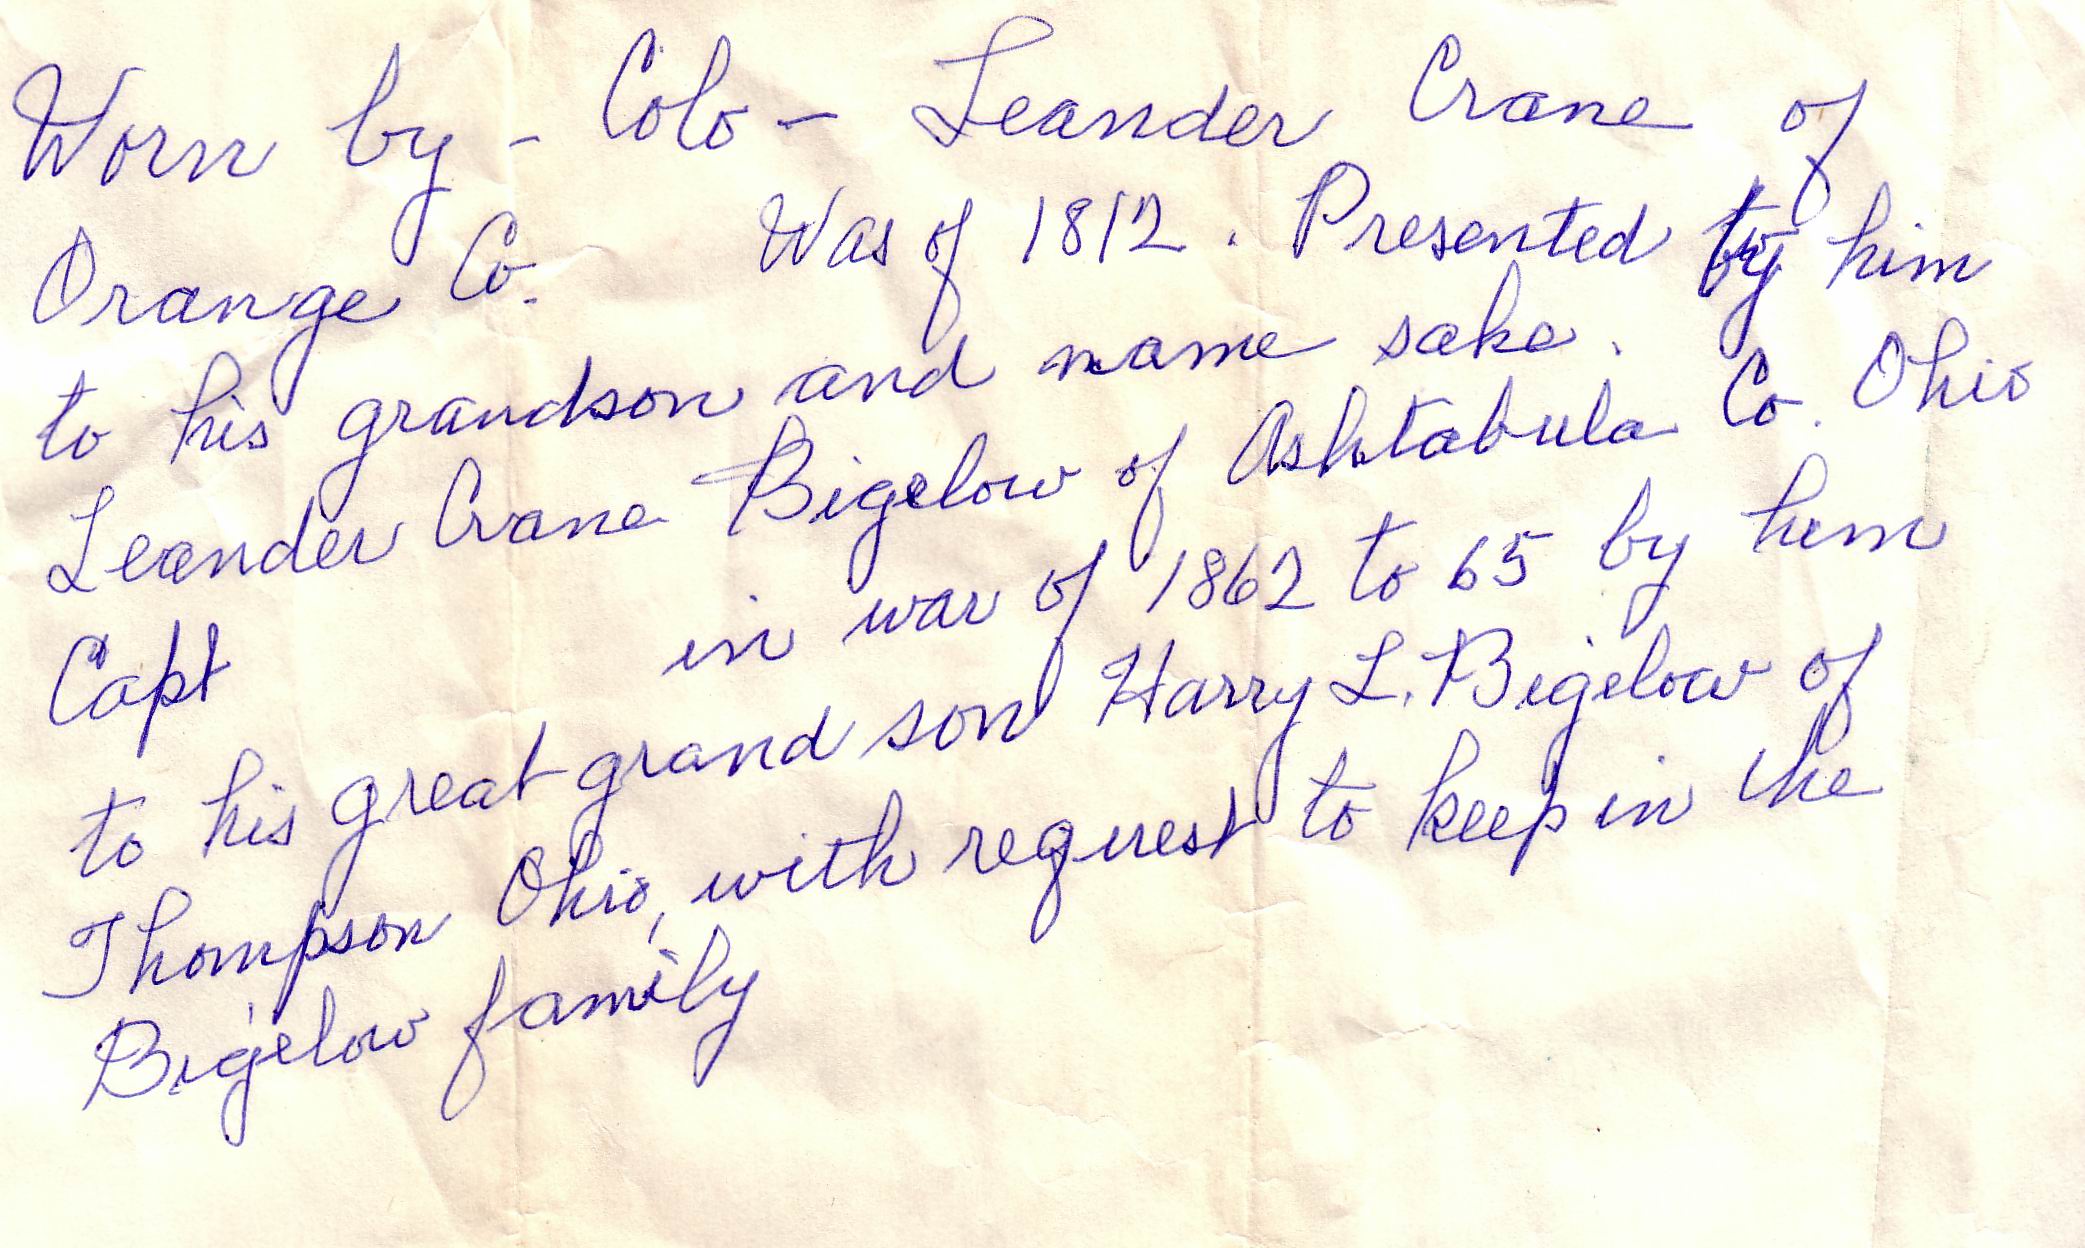 Worn by - Colo - Leander Crane of
Orange Co. Was of 1812. Presented by him
to his grandson and name sake.
Leander Crane Bigelow of Ashtabula Co. Ohio
Capt in war of 1862 to 65 by him
to his great grand son Harry L. Bigelow of
Thompson Ohio, with request to keep in the
Bigelow family